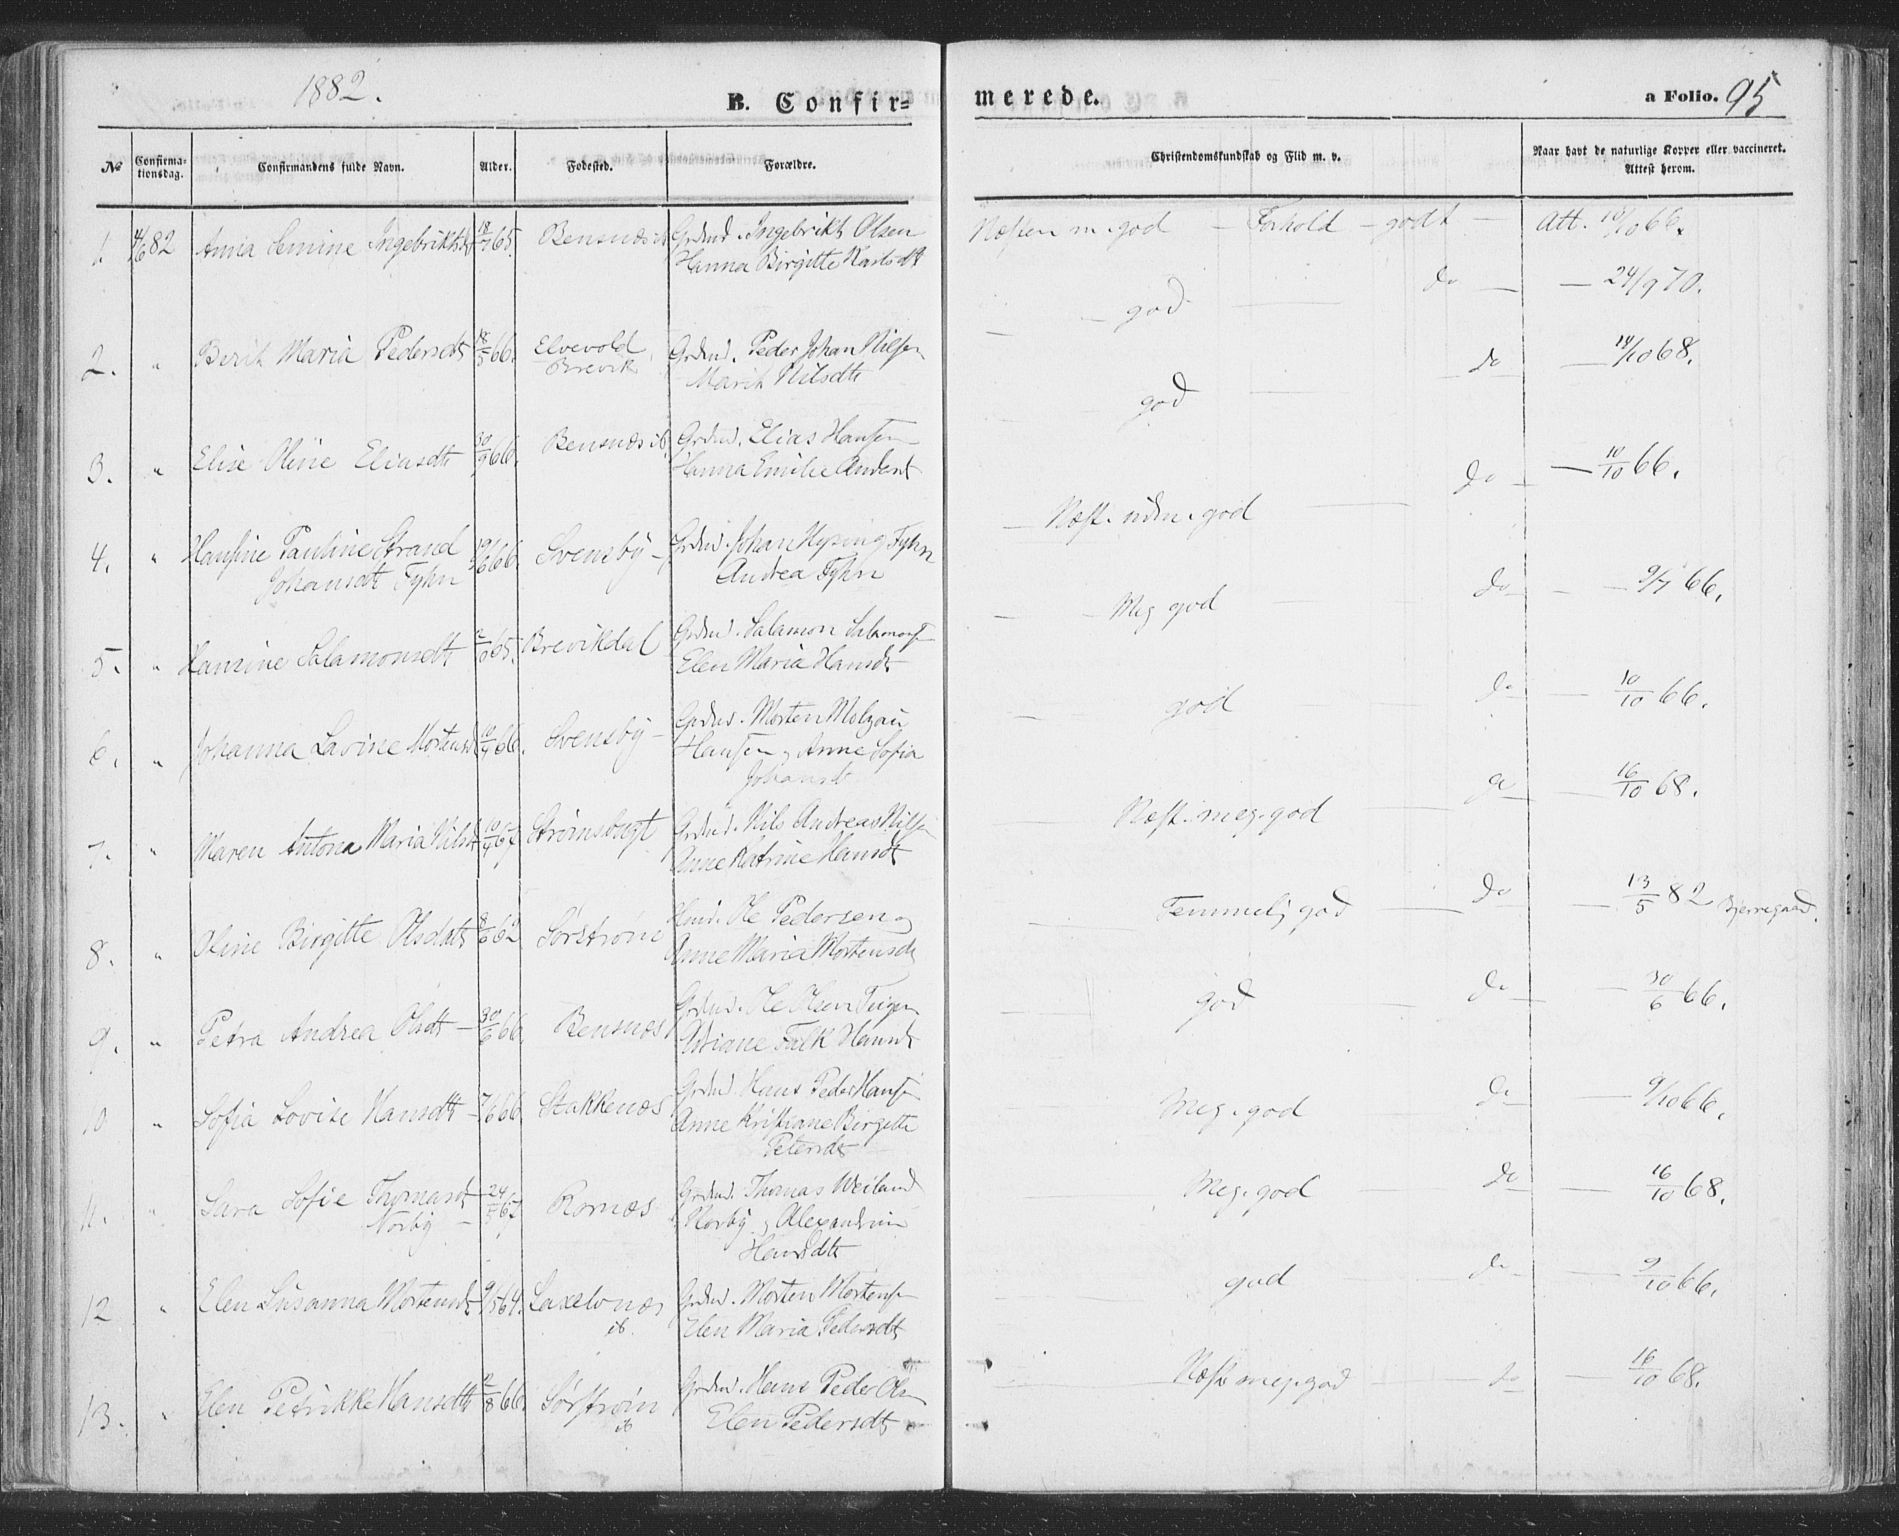 1882.
B. Confir=
merede.
a Folio. 95
No
Confirma-
tionsdag.
Confirmandens fulde Navn.
Alder.
Fødested.
Forældre.
Christendomskundskab og Flid m. v.
Naar havt de naturlige Kopper eller vaccineret.
Attest herom.
1. 4/6 82 Anna Ingebriktsdt 18/7 65. Bensnæs ib Grdmd. Ingebrikt Olsen
Hanna Birgitte Karlsdt
Næsten m. god - Forhold - godt - Att. 10/10 66.
2. " Berit Maria Pedersdt 18/5 66. Elvevold Grdmd. Peder Johan Nilsen
Brevik Marit Nilsdt
god do - 24/9 70.
3. " Elise Oline Eliasdt 30/9 66. Bensnæs ib Grdmd. Elias Hansen
Hanna Emilie Andersdt
god do - 14/10 68.
4. " Hansine Pauline Strand 19/6 66. Svensby - Grdmd. Johan Hysing Fyhn
Johansdt Fyhn Andrea Fyhn
Næst. uden. god do - 10/10 66.
5. " Hansine Salamonsdt 65. Brevikdal Grdmd. Salamon Salamons
Elen Maria Hansdt
Meg god do - 9/7 66.
6. " Johanna Lavine Mortensd 66. Svensby - Grdmd. Morten Molzau
Hansen, Anne Sofia
Johansdt
god do - 10/10 66.
7. " Maren Antona Maria Nilsdt 10/4 67 Strømsbugt Grdmd. Nils Andreas Nilsen
Anne Katrine Hansdt
Næst. meg. god do - 16/10 68.
8. " Oline Birgitte Olsdatt 8/6 62 Sørstrøm Ole Pedersen og
Anne Maria Mortensd
Temmelig god do - 13/5 82 Bjerregaard.
9. " Petra Andrea Olsdt - 30/6 66. Bensnæs Grdmd. Ole Olsen Teigen
Falk Hansdt
god do - 30/6 66.
10 " Sofia Lovise Hansdt - 7/6 66. Stakkenæs Grdmd. Hans Peder Hansen
Anne Kristiane Birgitte
Petersdt
Meg. god do - 9/10 66.
11. " Sara Sofie Thomasdt 67 Kornæs Grdmd. Thomas Weiland
Norby - Norby, Alexandrine
Hansdt
Meg. god do - 16/10 68.
12 " Elen Susanna Mortensdt 9/5 64. Laxelvnæs Grdmd. Morten Mortensen
ib. Elen Maria Pedersdt
god do - 9/10 66.
13. " Elen Petrikke Hansdt 2/8 66. Sørstrøm Grdmd. Hans Peder Ols
ib Elen Pedersdt
Næst meg. god do - 16/10 68.